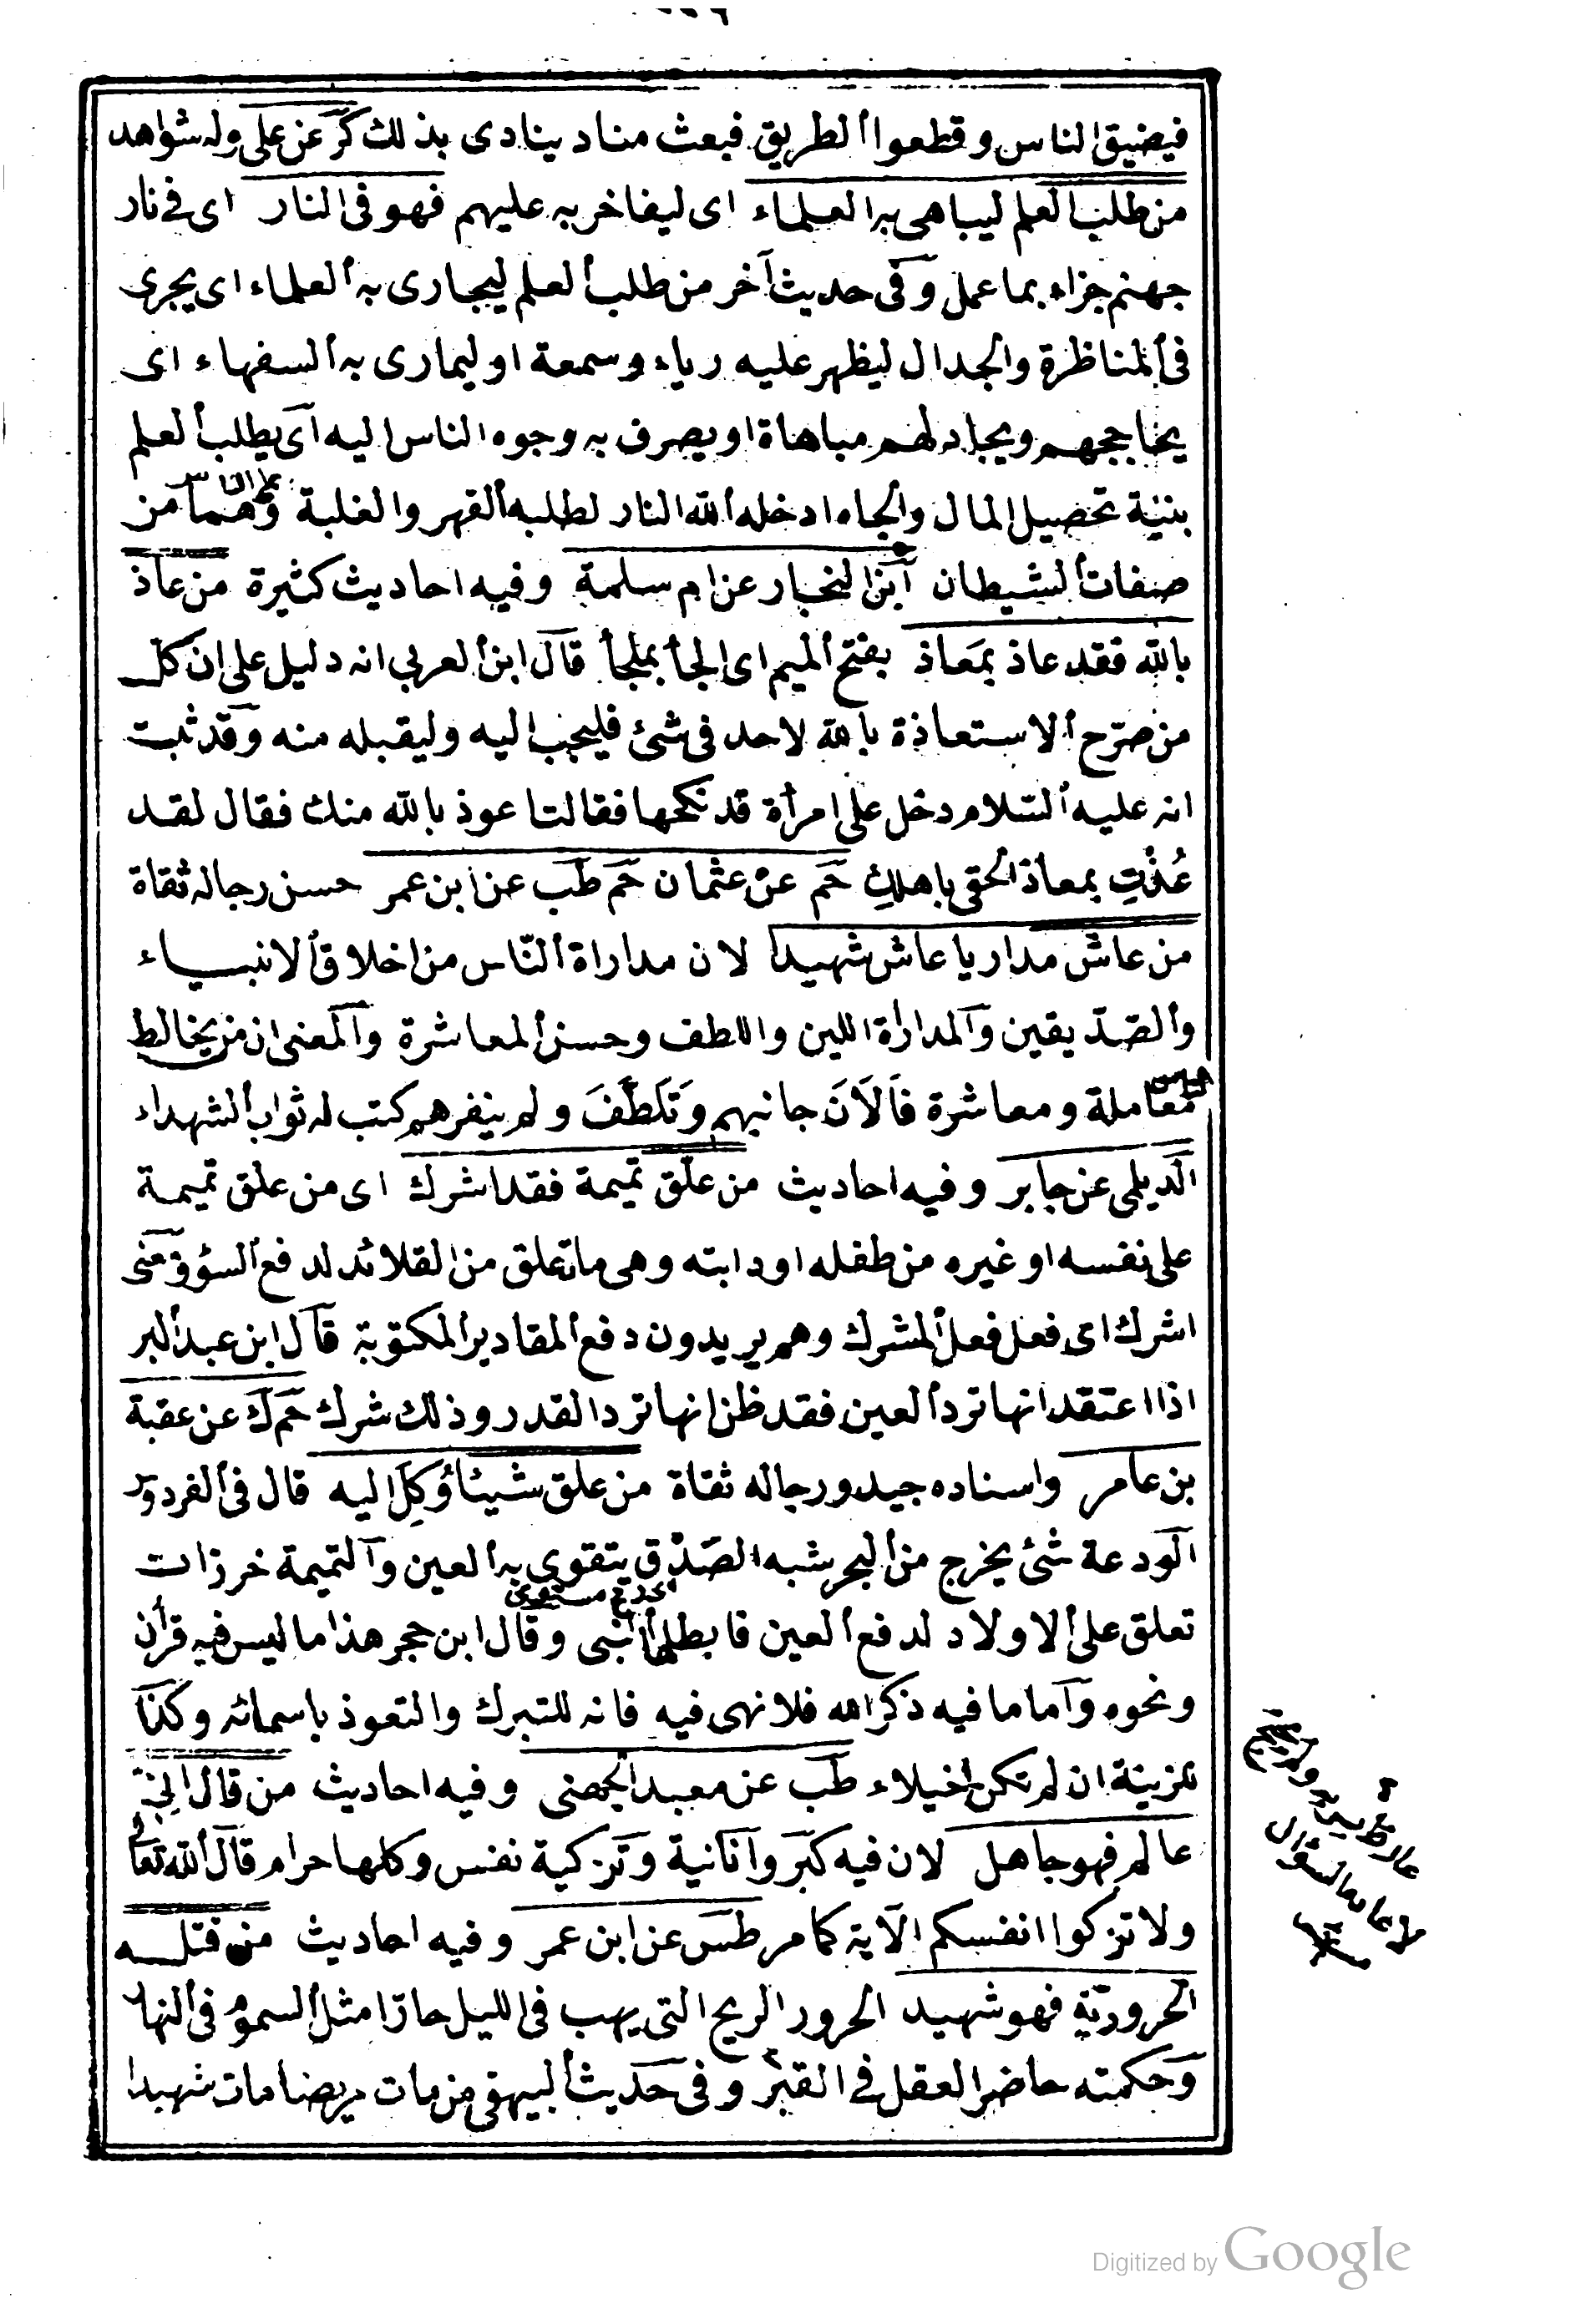 فيضيق الناس وقطعوا الطريق فبعث مناد ينادى بذلك كر عن على وله شواهد
من طلب العلم ليباهى به العلماء اى ليفاخر به عليهم فهو فى النار اى فى نار
جهنم جزاء بما عمل وفى حديث آخر من طلب العلم ليجارى به العلماء اى يجرى
فى المناظرة والجدال ليظهر عليه رياء وسمعة او ليمارى به السفهاء اى
يحاججهم ويجادلهم مباهاة او يصرف به وجوه الناس اليه اى يطلب العلم
بنية تحصيل المال والجاه ادخله الله النار لطلبه القهر والغلبة وهما من
صفات الشيطان ابن النجار عن ام سلمة وفيه احاديث كثيرة من عاذ
بالله فقد عاذ بمَعاذ بفتح الميم اى الجأ بملجأ قال ابن العربى انه دليل على ان كل
من صرّح الاستعاذة بالله لاحد فى شئ فليجب اليه وليقبله منه وقد ثبت
انه عليه السلام دخل على امرأة قد نكحها فقالت اعوذ بالله منك فقال لقد
عُذْتِ بمعاذ الحقى باهلكِ حم عن عثمان حم طب عن ابن عمر حسن رجاله ثقاة
من عاش مداريا عاش شهيدا لان مداراة الناس من اخلاق الانبياء
والصدّيقين والمداراة اللين واللطف وحسن المعاشرة والمعنى ان من يخالط
الناس
معاملة ومعاشرة فَالَانَ جانبهم وَتَلَطَّفَ ولم ينفرهم كتب له ثواب الشهداء
الديلمى عن جابر وفيه احاديث من علّق تميمة فقد اشرك اى من علق تميمة
على نفسه او غيره من طفله او دابته وهى ما تعلق من القلائد لدفع السؤ ومعنى
اشرك اى فعل فعل المشرك وهم يريدون دفع المقادير المكتوبة قال ابن عبد البر
اذا اعتقد انها ترد العين فقد ظن انها ترد القدر وذلك شرك حم ك عن عقبة
بن عامر واسناده جيد ورجاله ثقاة من علق شيئا وُكِلَ اليه قال فى الفردوس
الودعة شئ يخرج من البحر شبه الصدف يتقوى به العين والتميمة خرزات
تعلق على الاولاد لدفع العين فابطلها النبى وقال ابن حجر هذا ما ليس فيه قرآن
ونحوه واما ما فيه ذكر الله فلا نهى فيه فانه للتبرك والتعوذ باسمائه وكذا
للزينة ان لم تكن اخيلاء طب عن معبد الجهنى وفيه احاديث من قال انى
عالم فهو جاهل لان فيه كبر وانانية وتزكية نفس وكلها حرام قال الله تعالى
ولا تزكوا انفسكم الآية كما مر طس عن ابن عمر وفيه احاديث من قتله
الحروريّة فهو شهيد الحرور الريح التى يهب فى الليل حارّا مثل السموم فى النهار
وحكمته حاضر العقل فى القبر وفى حديث البيهقى من مات مريضا مات شهيدا
Digitized by Google